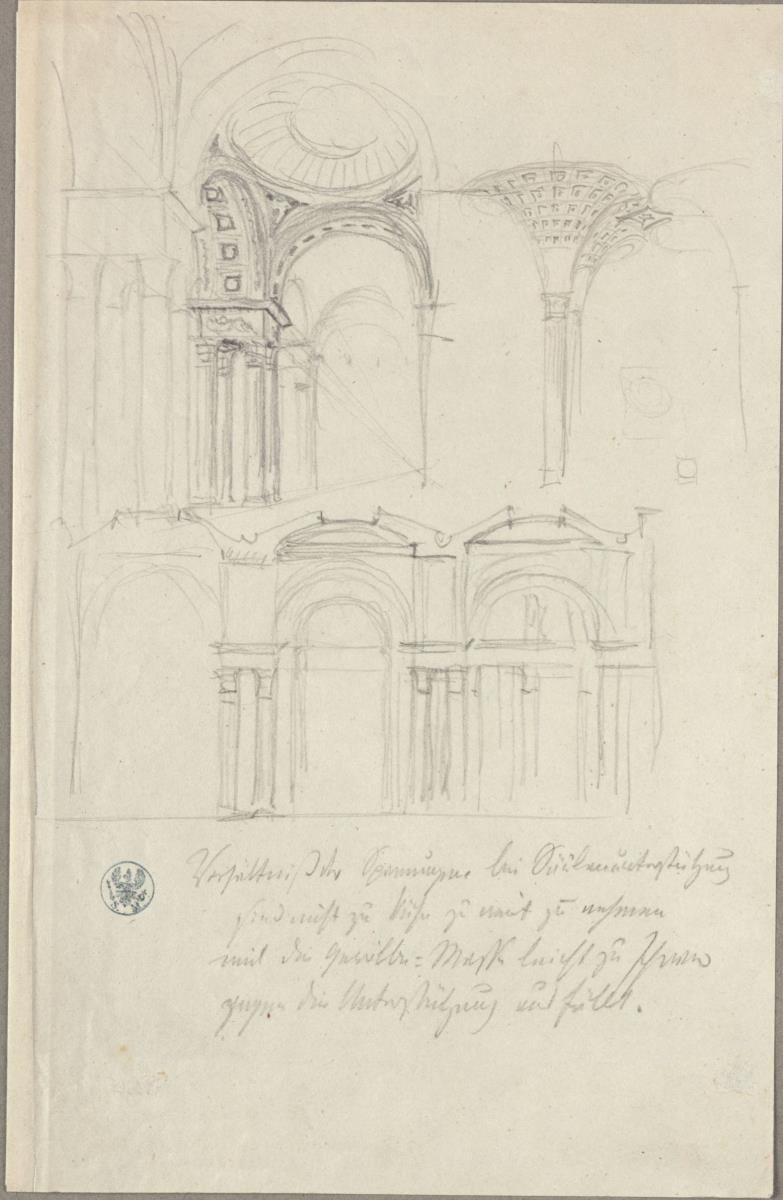 Verhältniß der Spannungen bei Säulenunterstützung
sind nicht zu kühn zu weit zu nehmen
weil die Gewölbe=Masse leicht zu schwer
gegen die Unterstützung ausfällt.